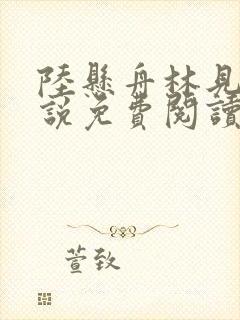 陸懸舟林見
說免費閱讀
萱致